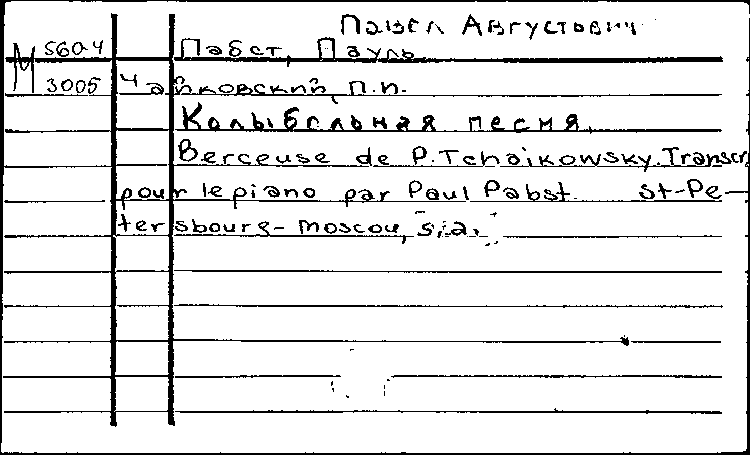 Павел Августович
М 5604 Пабст, Пауль
3005 Чайковский, П.И.
Колыбельная песня.
Berceuse de P. Tchaikowsky. Transcr.
pour le piano par Paul Pabst. St-Pe-
tersbourg - Moscou, s.a.